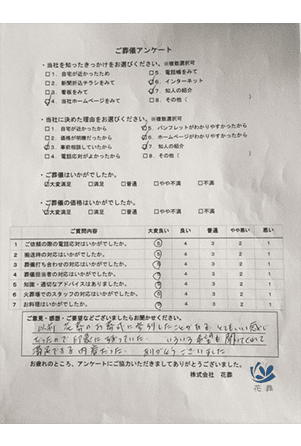 ご葬儀アンケート
・当社を知ったきっかけをお選びください。※複数選択可
□1. 自宅が近かったため □5. 電話帳をみて
□2. 新聞折込チラシをみて ☑6. インターネット
□3. 看板をみて ☑7. 知人の紹介
☑4. 当社ホームページをみて □8. その他( )
・当社に決めた理由をお選びください。※複数選択可
□1. 自宅が近かったから ☑5. パンフレットがわかりやすかったから
□2. 価格が明瞭だったから ☑6. ホームページがわかりやすかったから
☑3. 事前相談していたから ☑7. 知人の紹介
□4. 電話応対がよかったから □8. その他( )
・ご葬儀はいかがでしたか。
☑大変満足 □満足 □普通 □やや不満 □不満
・ご葬儀の価格はいかがでしたか。
☑大変満足 □満足 □普通 □やや不満 □不満
質問内容 大変良い 良い 普通 やや悪い 悪い
1 ご依頼の際の電話応対はいかがでしたか。 5 4 3 2 1
2 搬送時の対応はいかがでしたか。 5 4 3 2 1
3 葬儀打ち合わせの対応はいかがでしたか。 5 4 3 2 1
4 葬儀担当者の対応はいかがでしたか。 5 4 3 2 1
5 知識・適切なアドバイスはありましたか。 5 4 3 2 1
6 火葬場でのスタッフの対応はいかがでしたか。 5 4 3 2 1
7 お料理はいかがでしたか。 5 4 3 2 1
ご意見・感想・ご要望などございましたらお聞かせください。
以前 花葬のお葬式に参列したことがあり とてもいい感じ
だったので印象に残っていた。 いろいろ希望も聞いてくれて
満足できる内容だった。 ありがとうございました
お疲れのところ、アンケートにご協力いただきましてありがとうございました。
株式会社 花葬
花葬